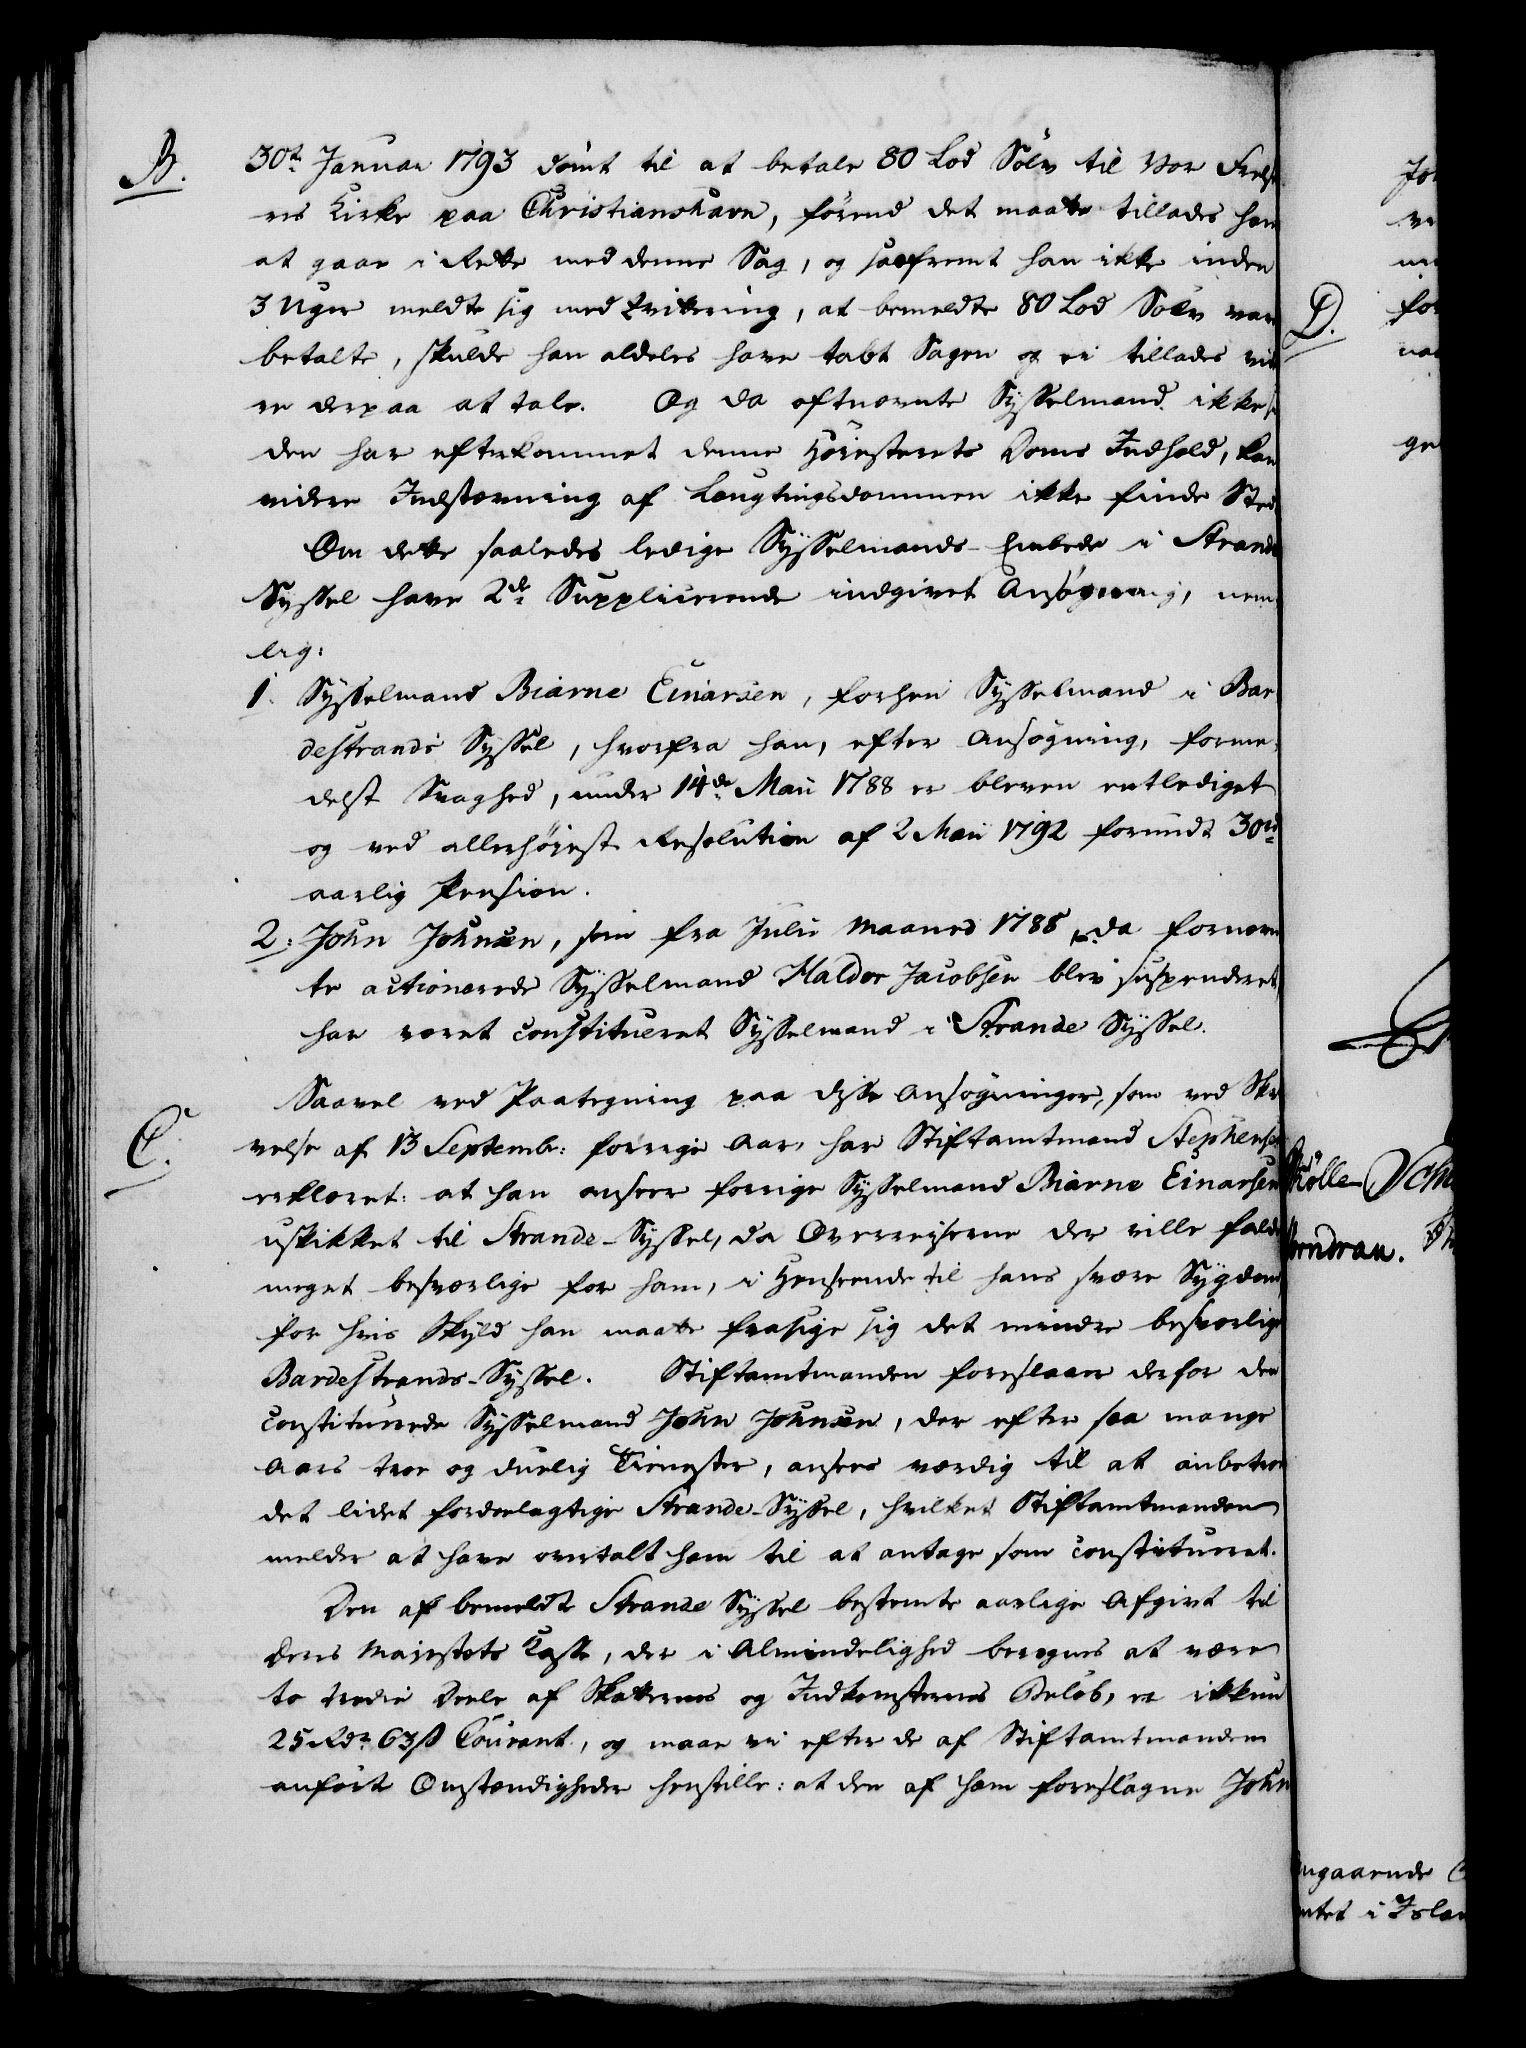 B.
30te Januar 1793 dömt til at betale 80 Lod Sölv til Vor Frels
ers Kirke paa Christianshavn, förend det maatte tillades ham
at gaae i Rette med denne Sag, og saafremt han ikke inden
3 Uger meldte sig med Qvittering, at bemeldte 80 Lod Sölv vare
betalte, skulde han aldeles have tabt Sagen og ei tillades vide
re derpaa at tale. Og da oftnævnte Sysselmand ikke si
den har efterkommet denne Höiesterets Doms Indhold, kan
videre Indstævning af Laugtingsdommen ikke finde Sted
Om dette saaledes ledige Sysselmands-Embede i Strande
Syssel have 2de Supplicerende indgivet Ansögning, nem
lig:
1. Sysselmand Biarne Einarsen, forhen Sysselmand i Bar
destrands Syssel, hvorfra han, efter Ansögning, forme
delst Svaghed, under 14de Maii 1788 er bleven entlediget
og ved allerhöjest Resolution af 2 Maii 1792 forundt 30rd
aarlig Pension.
2: John Johnsen, som fra Julii Maaned 1788, da fornævn
te actionerede Sysselmand Haldor Jacobsen blev suspenderet,
har været constitueret Sysselmand i Strande Syssel.
C.
Saavel ved Paategning paa disse Ansögninger, som ved Skri
velse af 13 Septembr: forrige Aar, har Stiftamtmand Stephensen
erklæret: at han anseer forrige Sysselmand Biarne Einarsen
uskikket til Strande-Syssel, da Overreiserne der ville falde
meget besværlige for ham, i Henseende til hans svære Sygdom
for hvis Skyld han maatte frasige sig det mindre besværlige
Bardestrands-Syssel. Stiftamtmanden foreslaaer derfor den
constituerede Sysselmand John Johnsen, der efter saa mange
Aars troe og duelig Tieneste, ansees værdig til at anbetroe
det lidet fordeelagtige Strande-Syssel, hvilket Stiftamtmanden
melder at have overtalt ham til at antage som constitueret.
Den af bemeldte Strande Syssel bestemte aarlige Afgivt til
Deres Majestets Casse, der i Almindelighed beregnes at være
to tredie Deele af Skatternes og Indkomsternes Belöb, er ikkun
25 Rdr 63 ß Courant, og maae vi efter de af Stiftamtmanden
anförte Omstændigheder henstille: at den af ham foreslagne John
D.